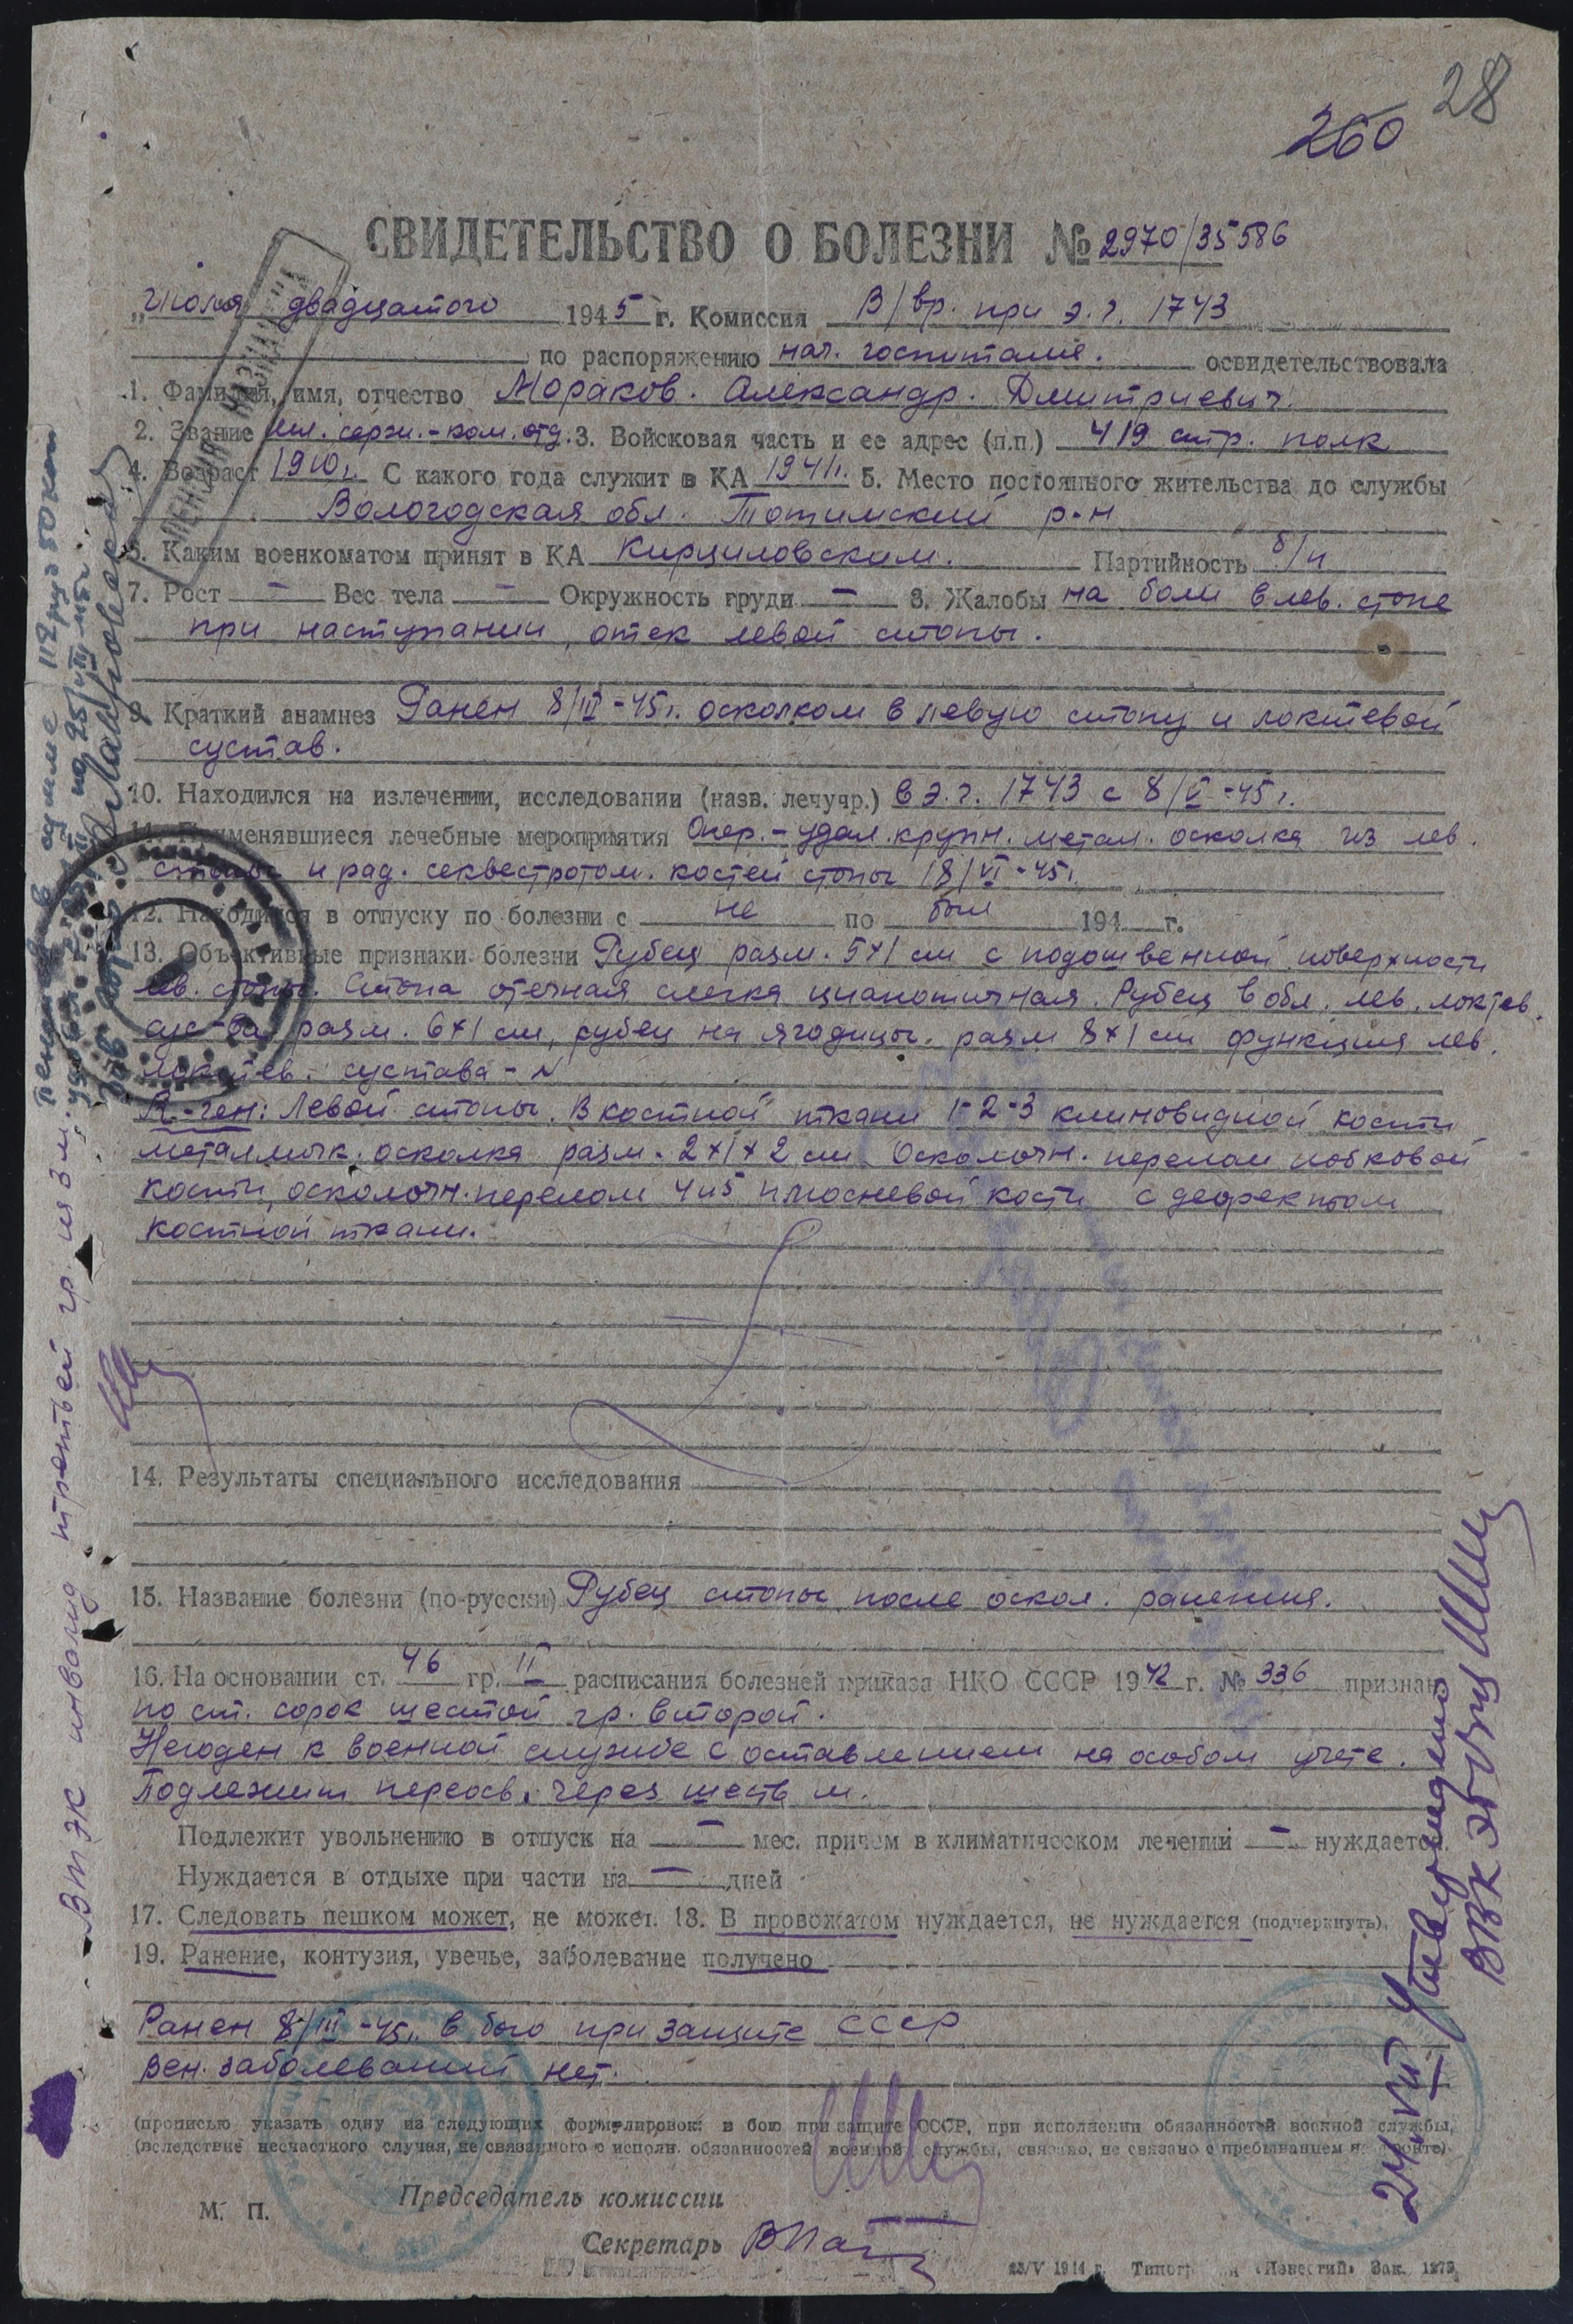 28
260
СВИДЕТЕЛЬСТВО О БОЛЕЗНИ № 2970/35586
„Июля двадцатого 1945 г. Комиссия В/вр. при э.г. 1743
по распоряжению нач. госпиталя. освидетельствовала
1. Фамилия, имя, отчество Мораков. Александр. Дмитриевич.
2. Звание мл. серж.-ком. отд. 3. Войсковая часть и ее адрес (п.п.) 419 стр. полк
4. Возраст 1910г. С какого года служит в КА 1941г. 5. Место постоянного жительства до службы
Вологодская обл. Тотимский р-н
6. Каким военкоматом принят в КА Кирциловским. Партийность б/п
7. Рост — Вес тела — Окружность груди — 8. Жалобы на боли в лев. стопе
при наступании, отек левой стопы.
9. Краткий анамнез Ранен 8/III-45г. осколком в левую стопу и локтевой
сустав.
10. Находился на излечении, исследовании (назв. лечучр.) в э.г. 1743 с 8/V-45г.
11. Применявшиеся лечебные мероприятия Опер.-удал. крупн. метал. осколка из лев.
стопы и рад. секвестротом. костей стопы 18/VI-45г.
12. Находился в отпуску по болезни с не по был 194 г.
13. Объективные признаки болезни Рубец разм. 5×1 см с подошвенной поверхности
лев. стопы. Стопа отечная слегка цианотичная. Рубец в обл. лев. локтев.
сус-ва разм. 6×1 см, рубец на ягодицы. разм 8×1 см функция лев.
локтев. сустава - N
R-ген: Левой стопы. В костной ткани 1-2-3 клиновидной кости
металличк. осколка разм. 2×1×2 см. Осколочн. перелом
кости, осколочн. перелом 4 и 5 плюсневой кости с дефектом
костной ткани.
14. Результаты специального исследования
15. Название болезни (по-русски) Рубец стопы после оскол. ранения.
16. На основании ст. 46 гр. II расписания болезней приказа НКО СССР 1942 г. № 336 признан
по ст. сорок шестой гр. второй.
Негоден к военной службе с оставлением на особом учете.
Подлежит переосв. через шесть м.
Подлежит увольнению в отпуск на — мес. причем в климатическом лечении — нуждается.
Нуждается в отдыхе при части на — дней
17. Следовать пешком может, не может. 18. В провожатом нуждается, не нуждается (подчеркнуть).
19. Ранение, контузия, увечье, заболевание получено
Ранен 8/III-45г. в бою при защите СССР
Вен. заболеваний нет.
(прописью указать одну из следующих формулировок: в бою при защите СССР, при исполнении обязанностей военной службы,
(вследствие несчастного случая, не связанного с исполн. обязанностей военной службы, связано, не связано с пребыванием на фронте)
М. П.
Председатель комиссии
Секретарь
23/V 1944 г. Типогр я «Известий» Зак. 1273
ВТЭК инвалид третьей гр. на 3 м.
24.VII Утверждено
ВВК